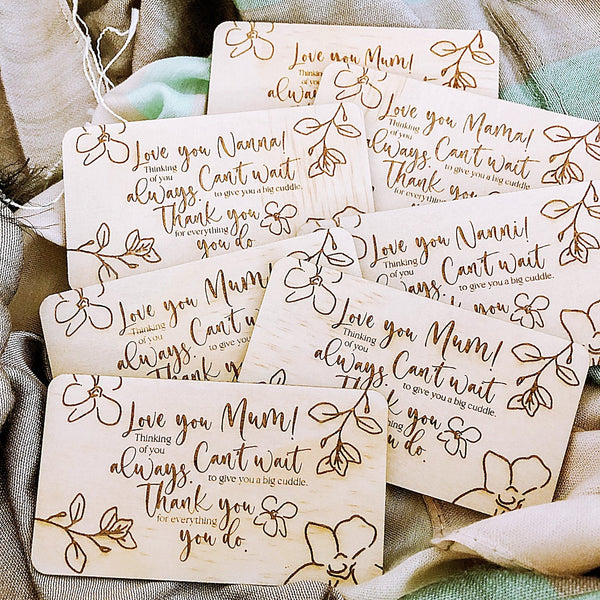 Love you Mum!
Thinking
of you
Love you Mama!
Thinking
of you
always. Can't wait
to give you a big cuddle.
Thank you
Love you Nanna!
Thinking
of you
always. Can't wait
to give you a big cuddle.
Thank you
for everything
you do.
Love you Nanni!
Thinking
of you
always. Can't wait
to give you a big cuddle.
you
Love you Mum
Thinking
of you
always. Can't
to give you
Thank
Love you Mum!
Thinking
of you
always. Can't wait
to give you a big cuddle.
you
you do.
Love you Mum!
Thinking
of you
always. Can't wait
to give you a big cuddle.
Thank you
for everything
you do.